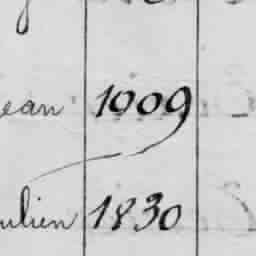 ean 1009
ulien 1830